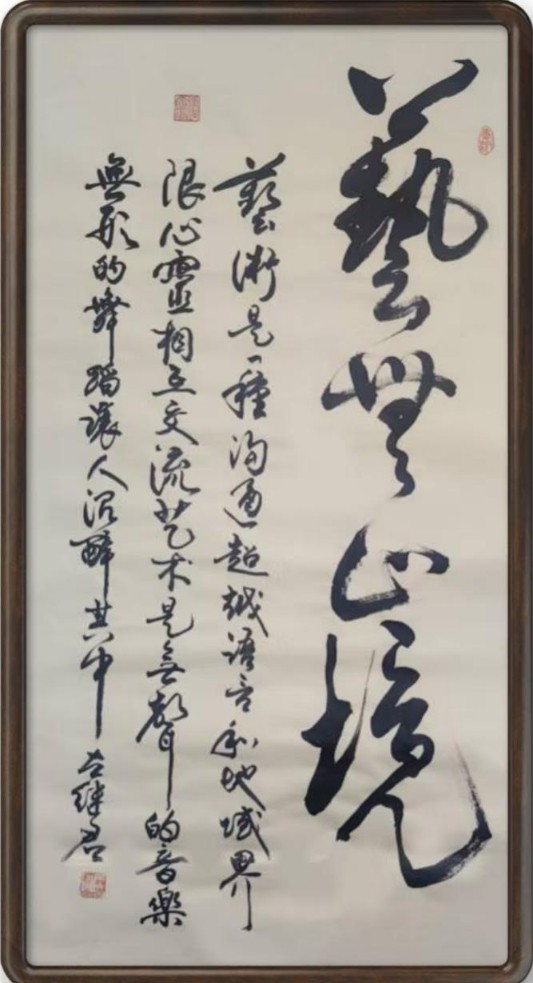 藝無止境
藝術是一種溝通超越語言和地域界
限心靈相互交流艺术是無聲的音樂
無形的舞蹈讓人沉醉其中 継君